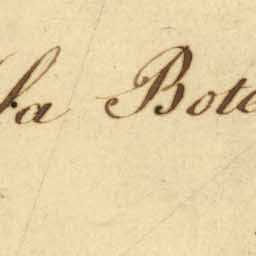 la Bote